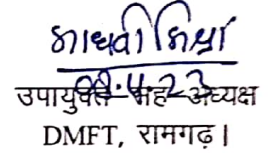 माधवी मिश्रा
08.4.23
उपायुक्त सह-अध्यक्ष
DMFT, रामगढ़।